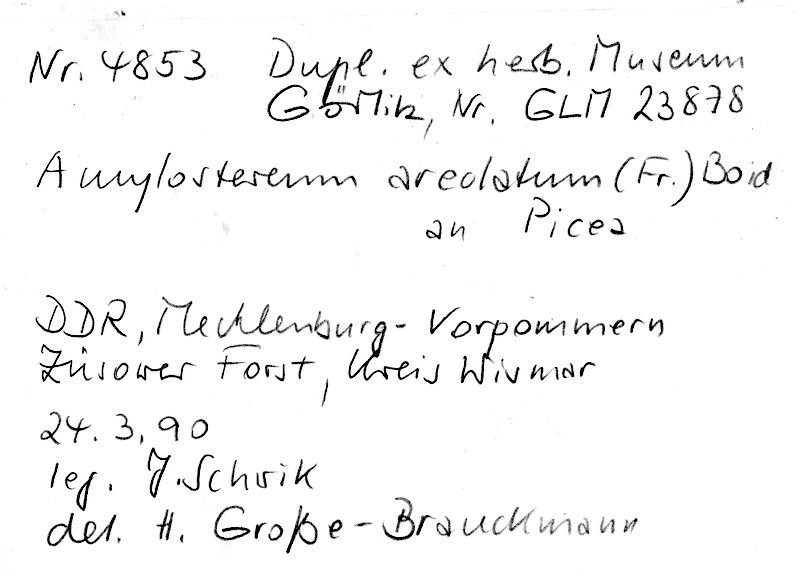 Nr. 4853 Dupl. ex herb. Museum
Görlitz, Nr. GLM 23878
Amylostereum areolatum (Fr.) Boid
an Picea
DDR, Mecklenburg-Vorpommern
Züsower Forst, Kreis Wismar
24.3.90
leg. J. Schwik
det. H. Große-Brauckmann